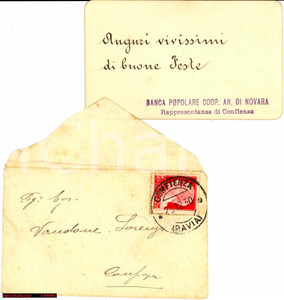 Auguri vivissimi
di buone Feste
BANCA POPOLARE COOP. AN. DI NOVARA
Rappresentanza di Confienza
CONFIENZA
(PAVIA)
Vandone Lorenzo